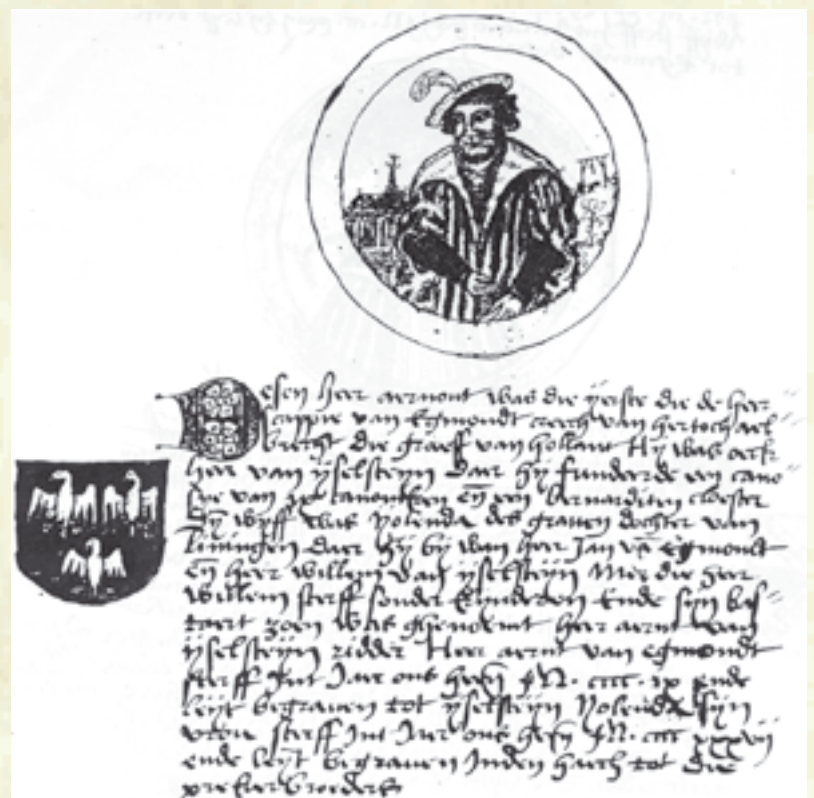 Desen heer aernout was die yerste die de heer
scappie van Egmondt creech van hertoch ael
brecht die graeff van hollant Hy was oeck
heer van yselsteyn Daer hy fundeerde een cano
sie van ix canoncken en een bernarditen cloester
Syn wyff was yolenda des graven dochter van
Liningen Daer hy by wan heer Jan van egmondt
en heer willem van yselsteyn Mer die heer
willem sterff sonder kynderen Ende syn bas
taert zoen was ghenoemt heer aernt van
yselsteyn ridder Heer aernt van egmondt
sterff Int Jaer ons heren M. cccc. ix ende
leyt begraven tot yselsteyn yolenda syn
vrou sterff Int Jaer ons heren M. cccc xxxvij
ende leyt begraven Inden haech tot die